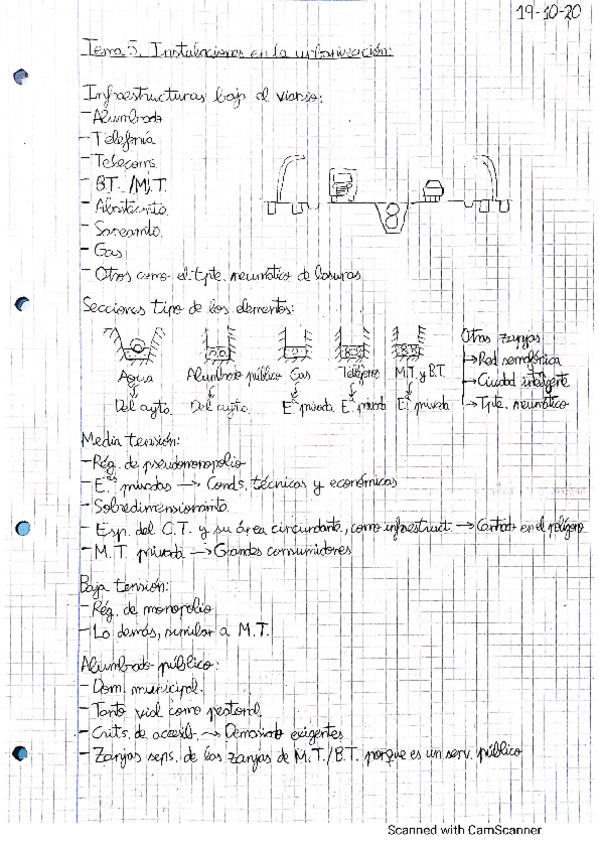 19-10-20
Tema 5. Instalaciones en la urbanización:
Infraestructuras bajo el viario:
- Alumbrado
- Telefonía
- Telecoms.
- B.T. / M.T.
- Abastmnto.
- Saneamnto.
- Gas
- Otros como el tpte. neumático de basuras
Secciones tipo de los elementos:
Otras zanjas
→ Red semafórica
→ Ciudad inteligente
→ Tpte. neumático
Agua Alumbrado público Gas Teléfono M.T. y B.T.
Del ayto. Del ayto. E.ª privada E.ª privada E.ª privada
Media tensión:
- Rég. de pseudomonopolio
- E.ªs privadas → Conds. técnicas y económicas
- Sobredimensionamnto.
- Esp. del C.T. y su área circundante, como infraestruct. → en el polígono
- M.T. privada → Grandes consumidores
Baja tensión:
- Rég. de monopolio
- Lo demás, similar a M.T.
Alumbrado público:
- Dom. municipal.
- Tanto vial como peatonal.
- Crits. de accesib. → Demasiado exigentes
- Zanjas seps. de las zanjas de M.T./B.T. porque es un serv. público
Scanned with CamScanner